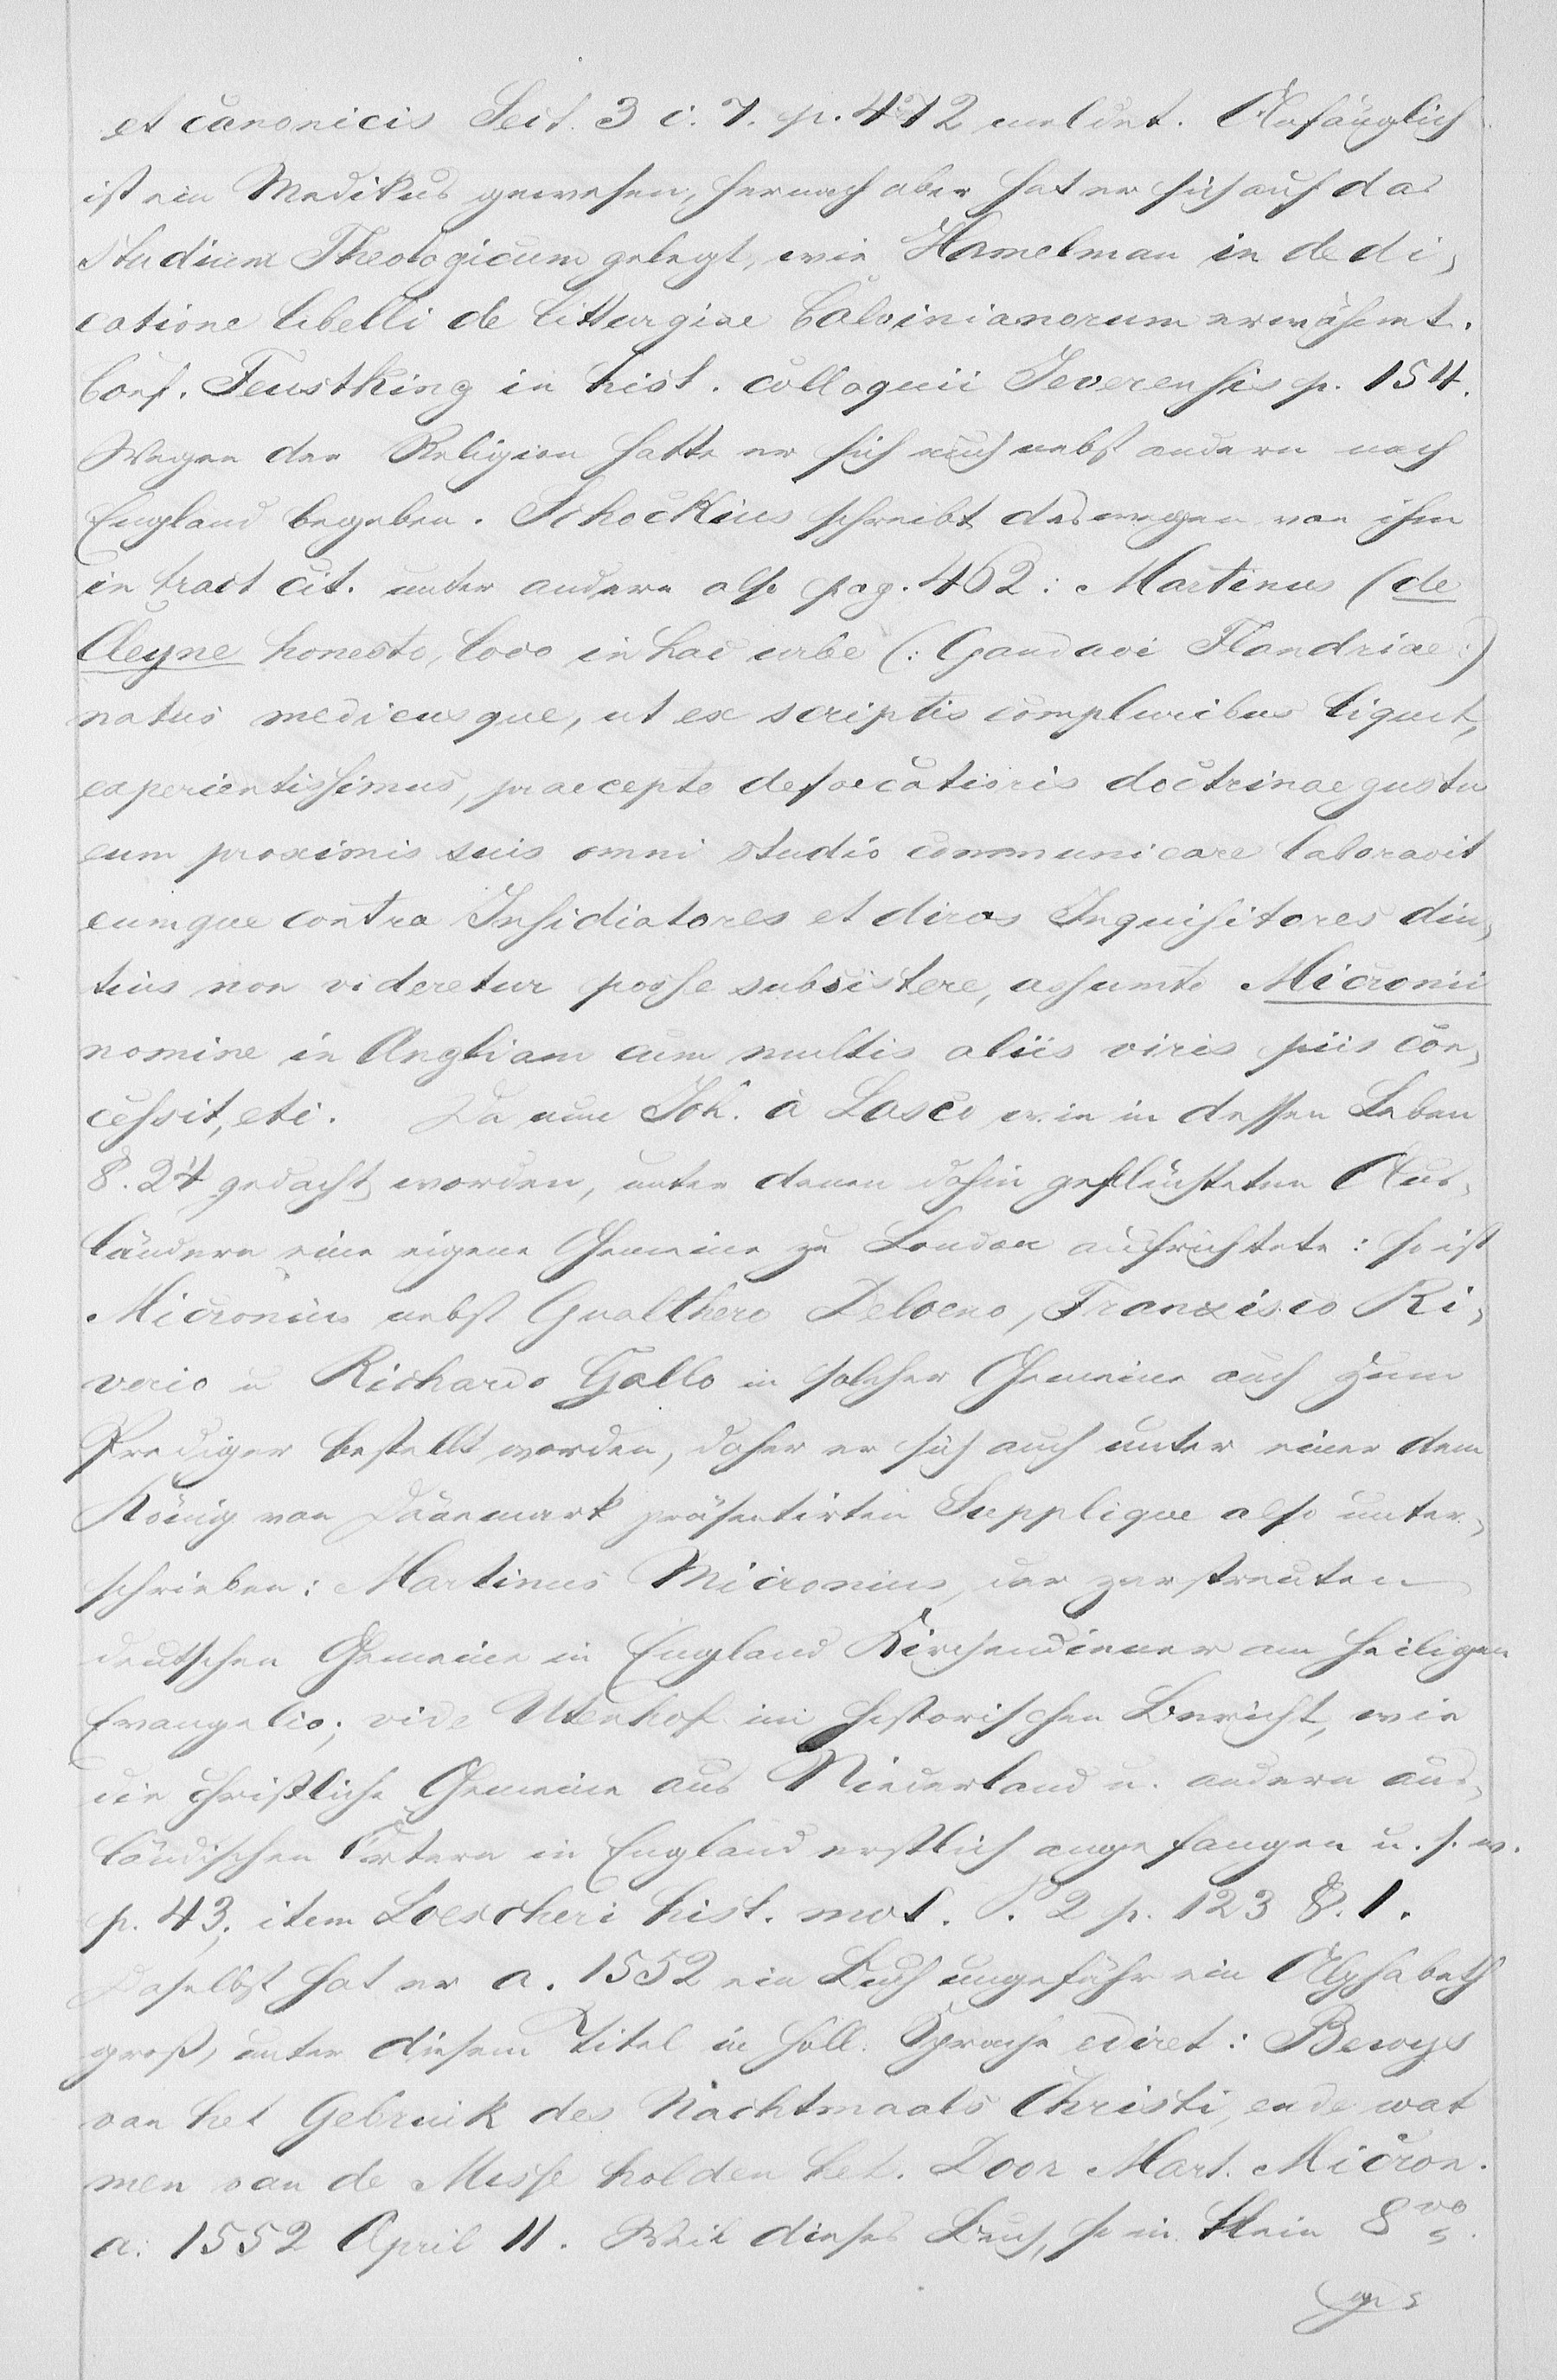 et canonicis Sect. 3 c. 7. p. 472 meldet. Anfänglich
ist ein Medikus gewesen, hernach aber hat er sich auf das
studium Theologicum gelegt, wie Hamelman in dedi,
catione libelli de litturgiae Calvinianorum erwähnt.
Conf. Feustking in hist. colloquii Jeverensis p. 154.
Wegen der Religion hatte er sich auch nebst andern nach
England begeben. Schockius schreibt deswegen von ihm
in tract cit. unter andern also pag. 462: Martinus (de
Cleyne honesto, loco in hac urbe (: Gandavi Flandriae :)
natus medicusque, ut ex scriptis compluribus liquet,
experientissimus, praecepto defaecatioris doctrinae gustu
eum proximis suis omni studio communicare laboravit
cumque contra Insidiatores et diros Inquisitores diu,
tius non videretur posse subsistere, assumto Micronii
nomine in Angliam cum multis aliis viris piis con,
cessit, etc. Da nun Joh. à Lasco wie in dessen Leben
§. 24 gedacht worden, unter denen dahin geflüchteten Aus,
ländern eine eigene Gemeine zu London aufrichtete: so ist
Micronius nebst Gualthero Deloeno, Francisco Ri,
verio u Richardo Gallo in solcher Gemeine auch zum
Prediger bestellt worden, daher er sich auch unter einer dem
König von Dänemark präsentirten Supplique also unter,
schrieben: Martinus Micronius, der zerstreuten
deutschen Gemeine in England Kirchendiener am heiligen
Evangelio; vide Utenhof im historischen Bericht, wie
die christliche Gemeine aus Niederland u. andern aus,
ländischen Örtern in England erstlich angefangen u. s. w.
p. 43; item Loescheri hist. mot. P. 2 p. 123 §. 1.
Daselbst hat er a. 1552 ein Buch ungefähr ein Alphabeth
groß, unter diesem Titel in holl. Sprache ediret: Bewys
van het Gebruik des Nachtmaals Christi, ende wat
men van de Misse holden het. Door Mart. Micron.
a: 1552 April 11. Weil dieses Buch, so in klein 8vo